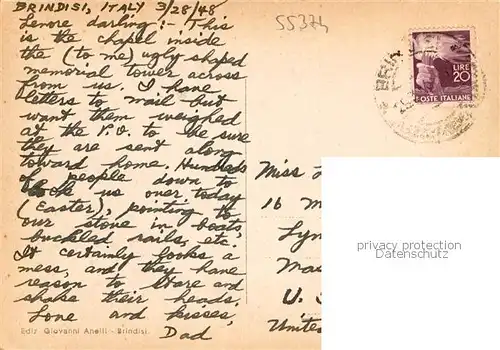 BRINDISI, ITALY 3/28/48
Lenore darling:- This
is the chapel inside
the (to me) ugly shaped
memorial tower across
from us. I have
letters to mail but
want them weighed
at the P.O. to be sure
they are sent along
toward home. Hundreds
of people down to
look us over today
(Easter), pointing to
our stove in boats,
buckled rails, etc.
It certainly looks a
mess, and they have
reason to stare and
shake their heads.
Love and kisses,
Dad
Ediz Giovanni Anelli - Brindisi
55374
LIRE
20
POSTE ITALIANE
BRIN
Miss
16 M
Lyn
Mas
U. S
United
privacy protection
Datenschutz